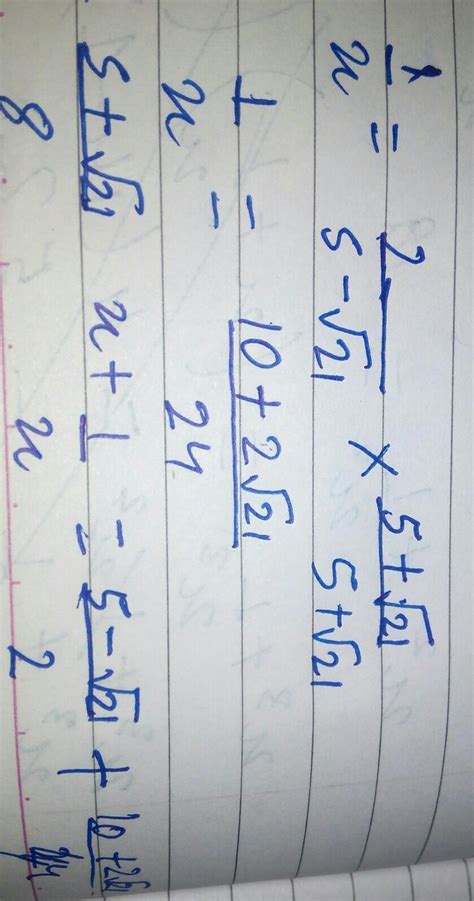 1/x = 2/(5-√21) × (5+√21)/(5+√21)
1/x = (10+2√21)/24
(5+√21)/8 x + 1/x = (5-√21)/2 +